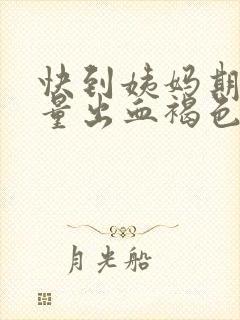 快到姨妈期
量出血褐色
月光船